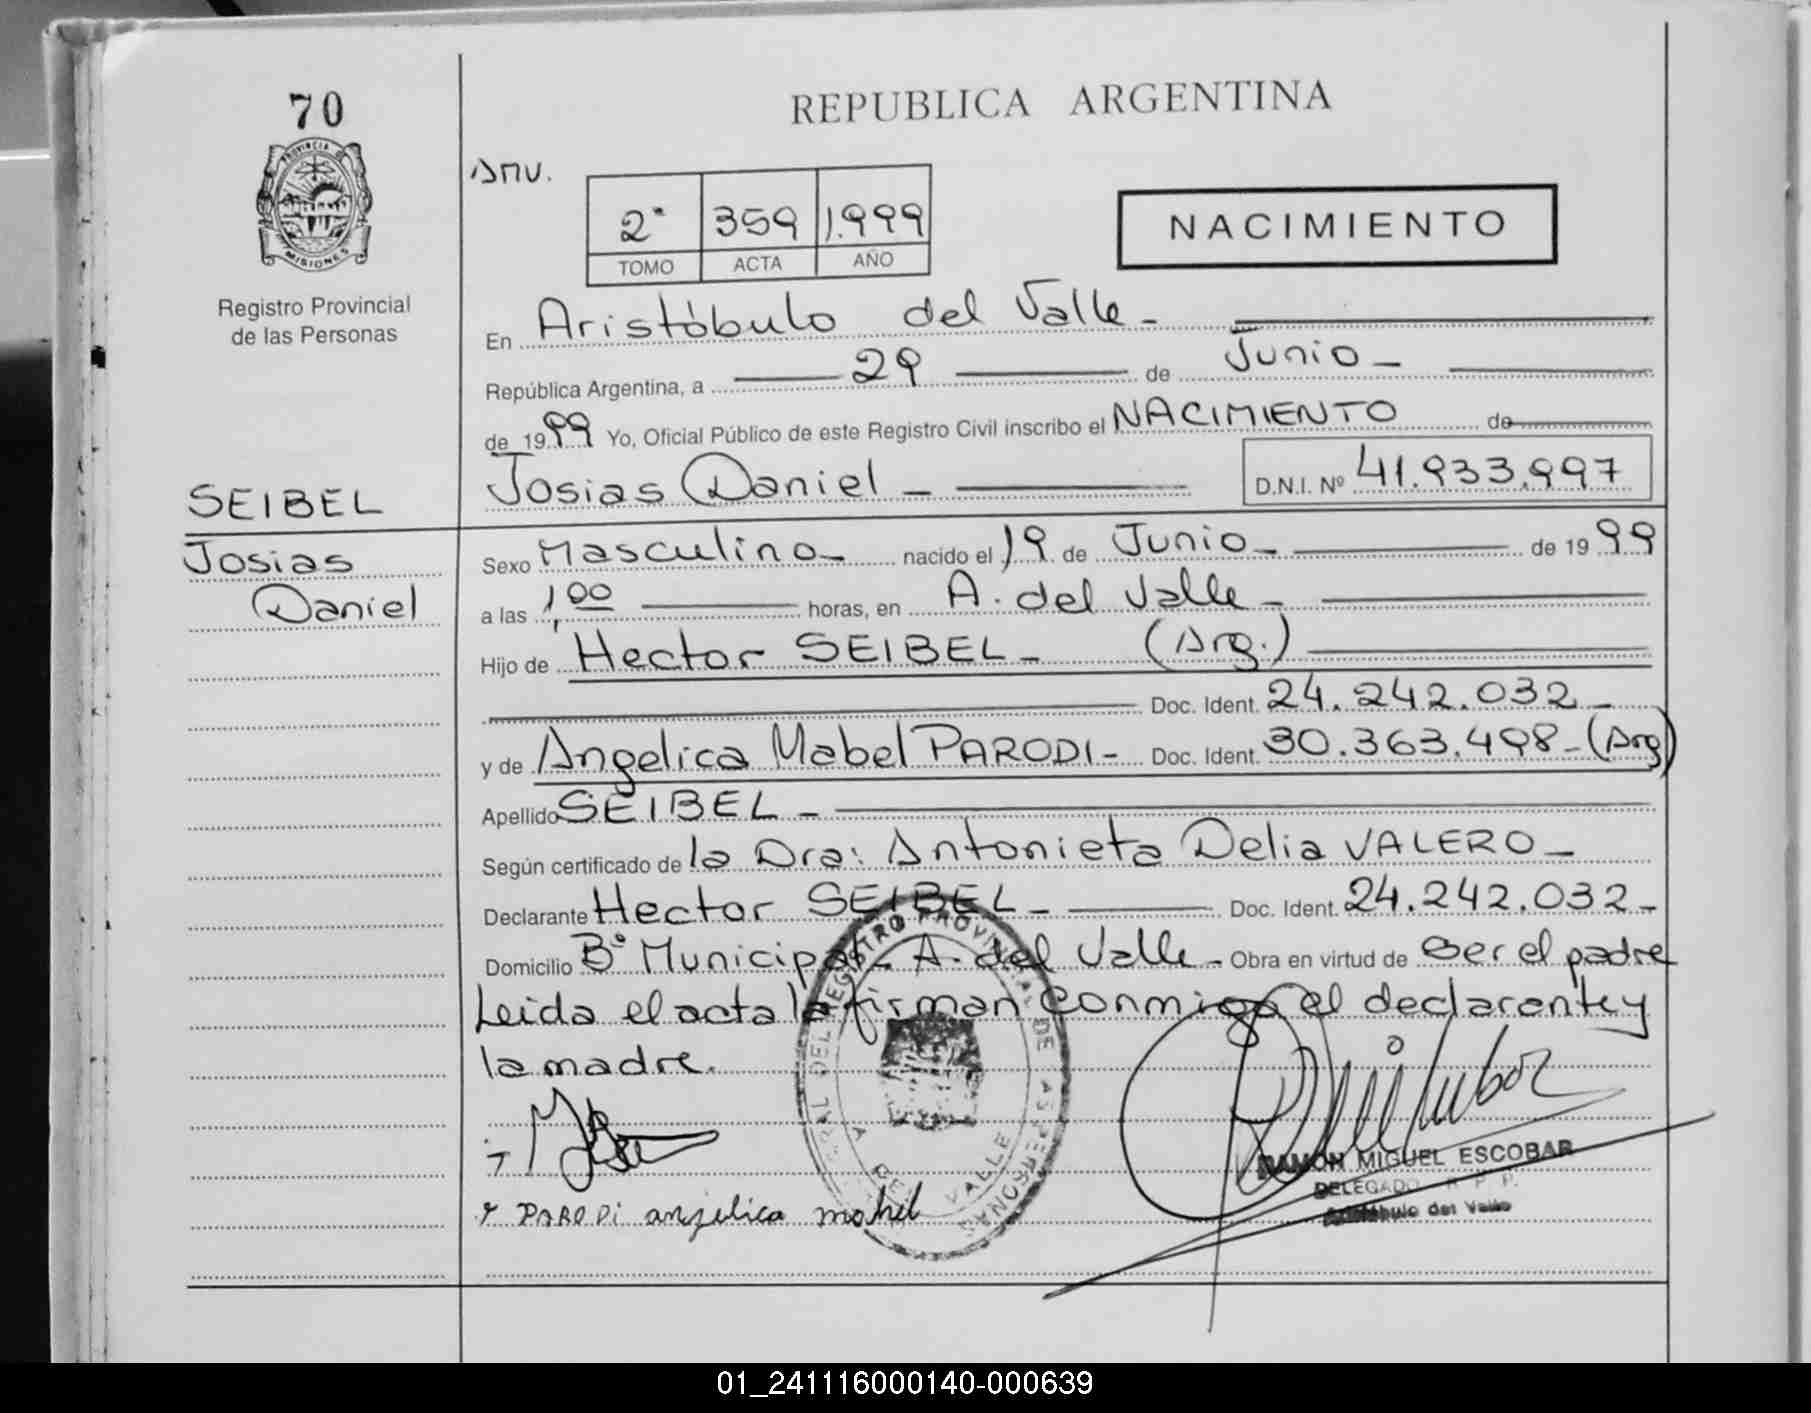 70
REPUBLICA ARGENTINA
PROVINCIA DE MISIONES
2° 359 1.999
TOMO ACTA AÑO
NACIMIENTO
Registro Provincial
de las Personas
En Aristóbulo del Valle -
República Argentina, a 29 de Junio -
de 1999 Yo, Oficial Público de este Registro Civil inscribo el NACIMIENTO de
SEIBEL
Josias Daniel - D.N.I. Nº 41.933.997
Josias
Daniel
Sexo Masculino - nacido el 19 de Junio - de 1999
a las 1,00 horas, en A. del Valle -
Hijo de Hector SEIBEL - (Arg.)
Doc. Ident. 24.242.032 -
y de Angelica Mabel PARODI - Doc. Ident. 30.363.498 - (Arg)
Apellido SEIBEL -
Según certificado de la Dra: Antonieta Delia VALERO -
Declarante Hector SEIBEL - Doc. Ident. 24.242.032 -
Domicilio B° Municipal - A. del Valle - Obra en virtud de ser el padre
Leida el acta la firman conmigo el declarante y
la madre.
REGISTRO PROVINCIAL DE AS PERSONAS
A DEL VALLE
RAMON MIGUEL ESCOBAR
DELEGADO R P P.
Aristóbulo del Valle
PARODi anjelica mabel
01_241116000140-000639